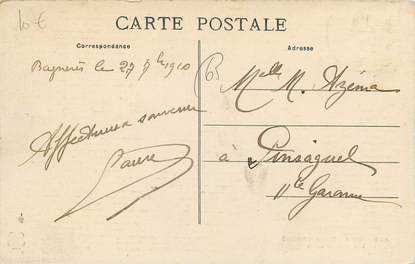 10 €
CARTE POSTALE
Correspondance
Adresse
Bagnères le 27 7bre 1910
Affectueux souvenir
Laure
65
Melle M. Azéma
à Pinsaguel
Hte Garonne